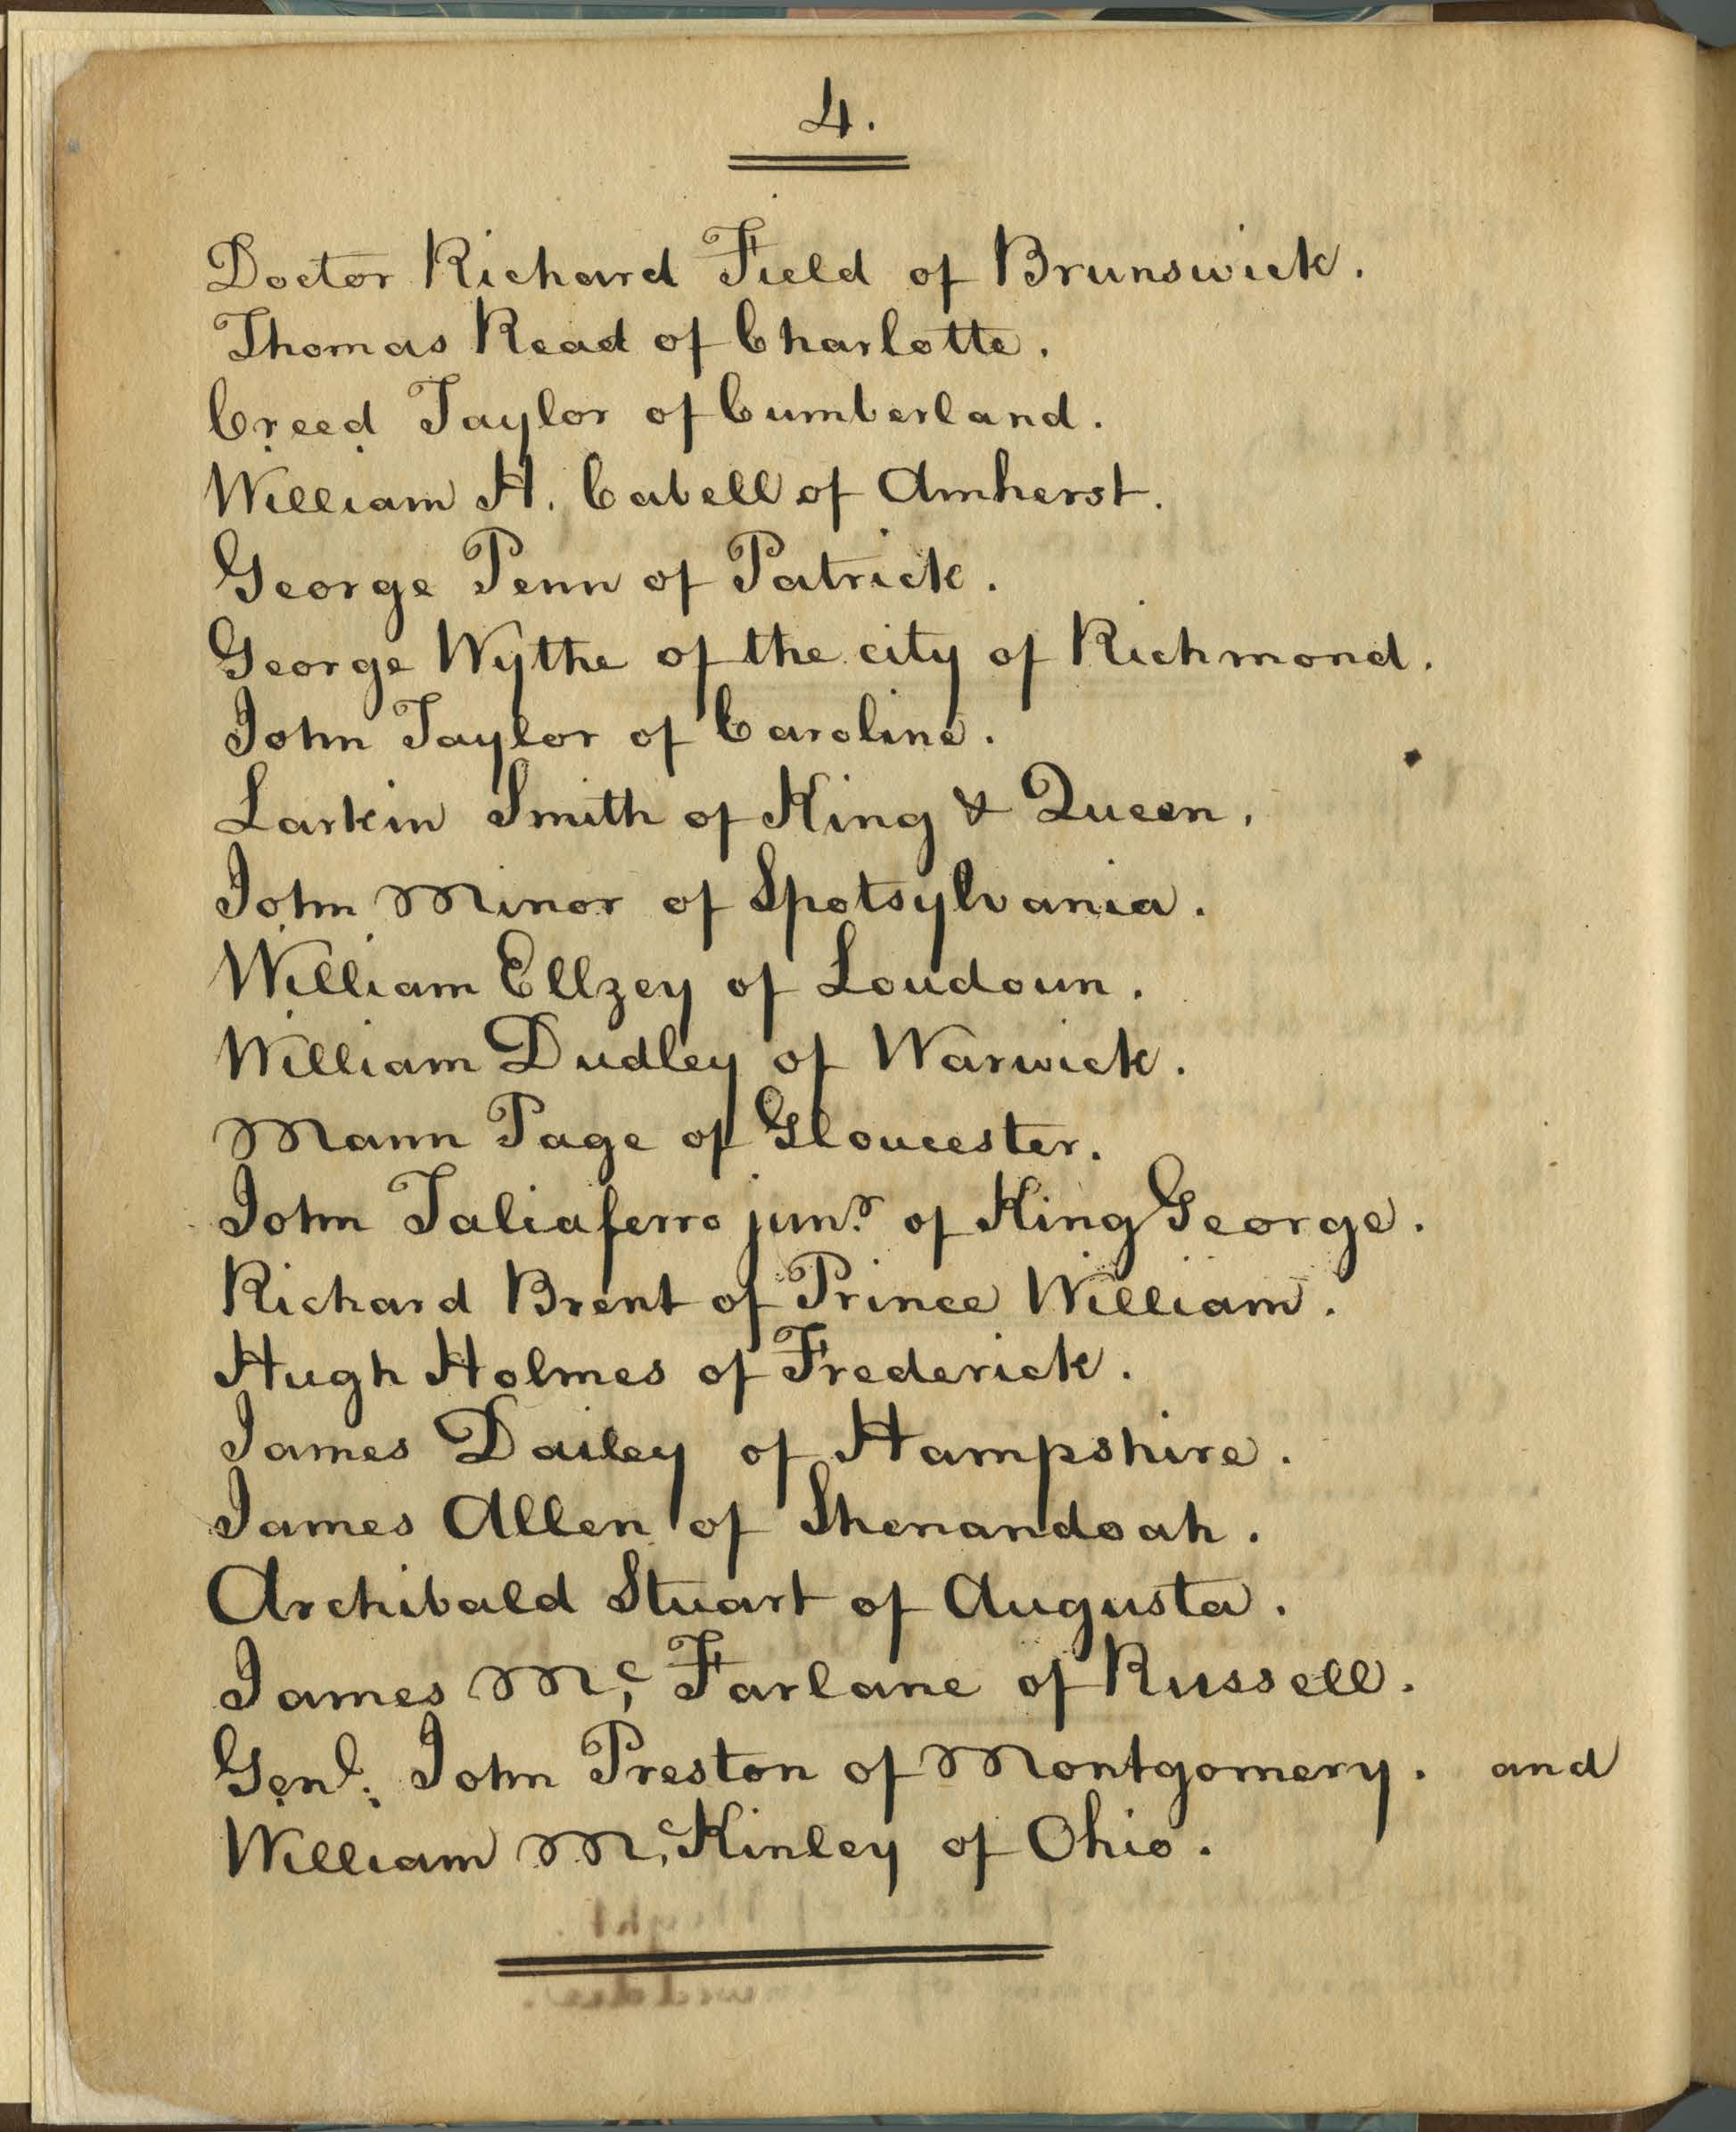 4.
Doctor Richard Field of Brunswick.
Thomas Read of Charlotte.
Creed Taylor of Cumberland.
William H. Cabell of Amherst.
George Penn of Patrick.
George Wythe of the city of Richmond.
John Taylor of Caroline.
Larkin Smith of King & Queen.
John Minor of Spotsylvania.
William Ellzey of Loudoun.
William Dudley of Warwick.
Mann Page of Gloucester.
John Taliaferro junr. of King George.
Richard Brent of Prince William.
Hugh Holmes of Frederick.
James Dailey of Hampshire.
James Allen of Shenandoah.
Archibald Stuart of Augusta.
James Mc. Farlane of Russell.
Genl. John Preston of Montgomery. and
William Mc. Kinley of Ohio.